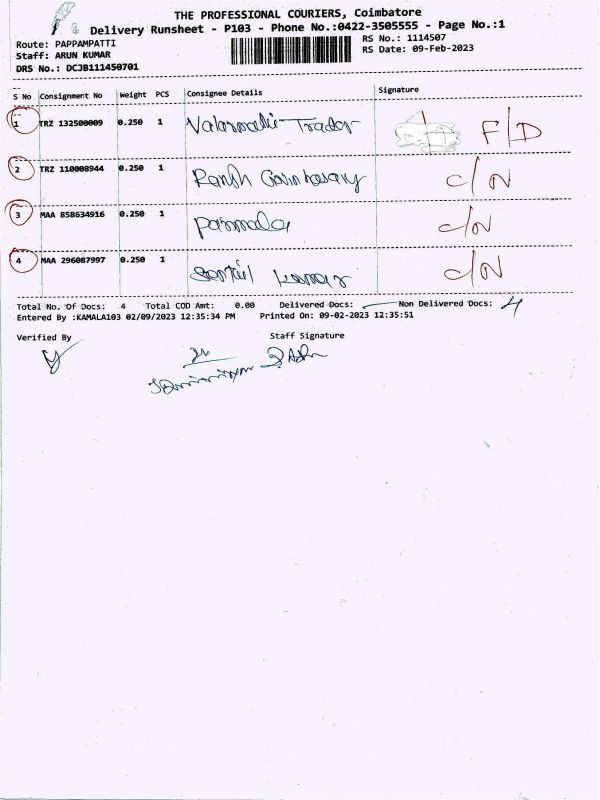 THE PROFESSIONAL COURIERS, Coimbatore
Delivery Runsheet - P103 - Phone No.:0422-3505555 - Page No.:1
Route: PAPPAMPATTI
Staff: ARUN KUMAR
DRS No.: DCJB111450701
RS No.: 1114507
RS Date: 09-Feb-2023
S No Consignment No Weight PCS Consignee Details Signature
1 TRZ 132500009 0.250 1 F/D
2 TRZ 110008944 0.250 1 C/N
3 MAA 858634916 0.250 1 C/N
4 MAA 296087997 0.250 1 C/N
Total No. Of Docs: 4 Total COD Amt: 0.00 Delivered Docs: Non Delivered Docs: 4
Entered By :KAMALA103 02/09/2023 12:35:34 PM Printed On: 09-02-2023 12:35:51
Verified By Staff Signature